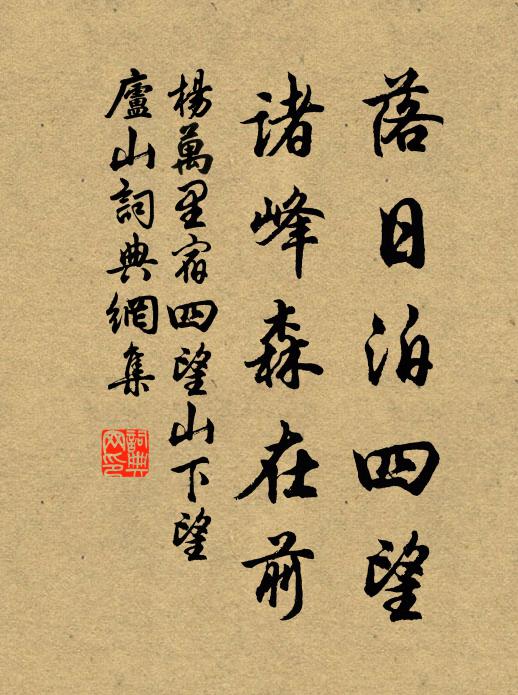 落日泊四望
諸峰森在前
楊萬里宿四望山下望
廬山詞典網集
詞典网印